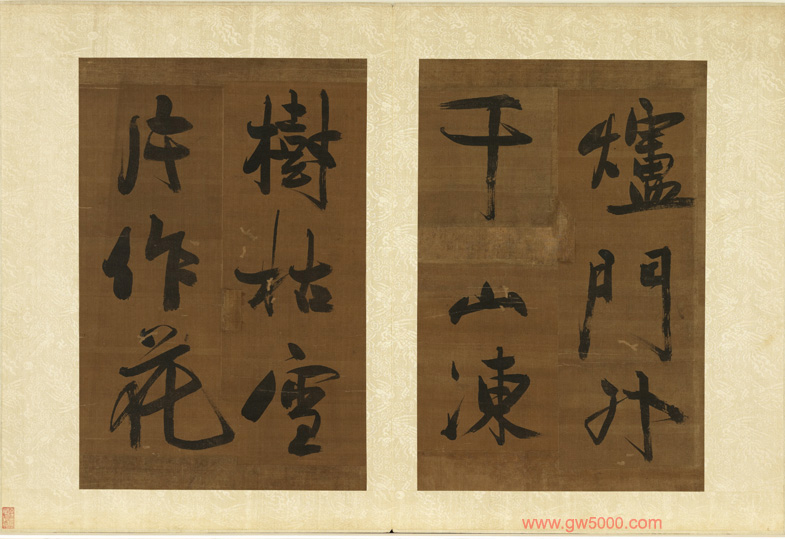 爐門外
千山凍
樹枯雪
片作花
www.gw5000.com